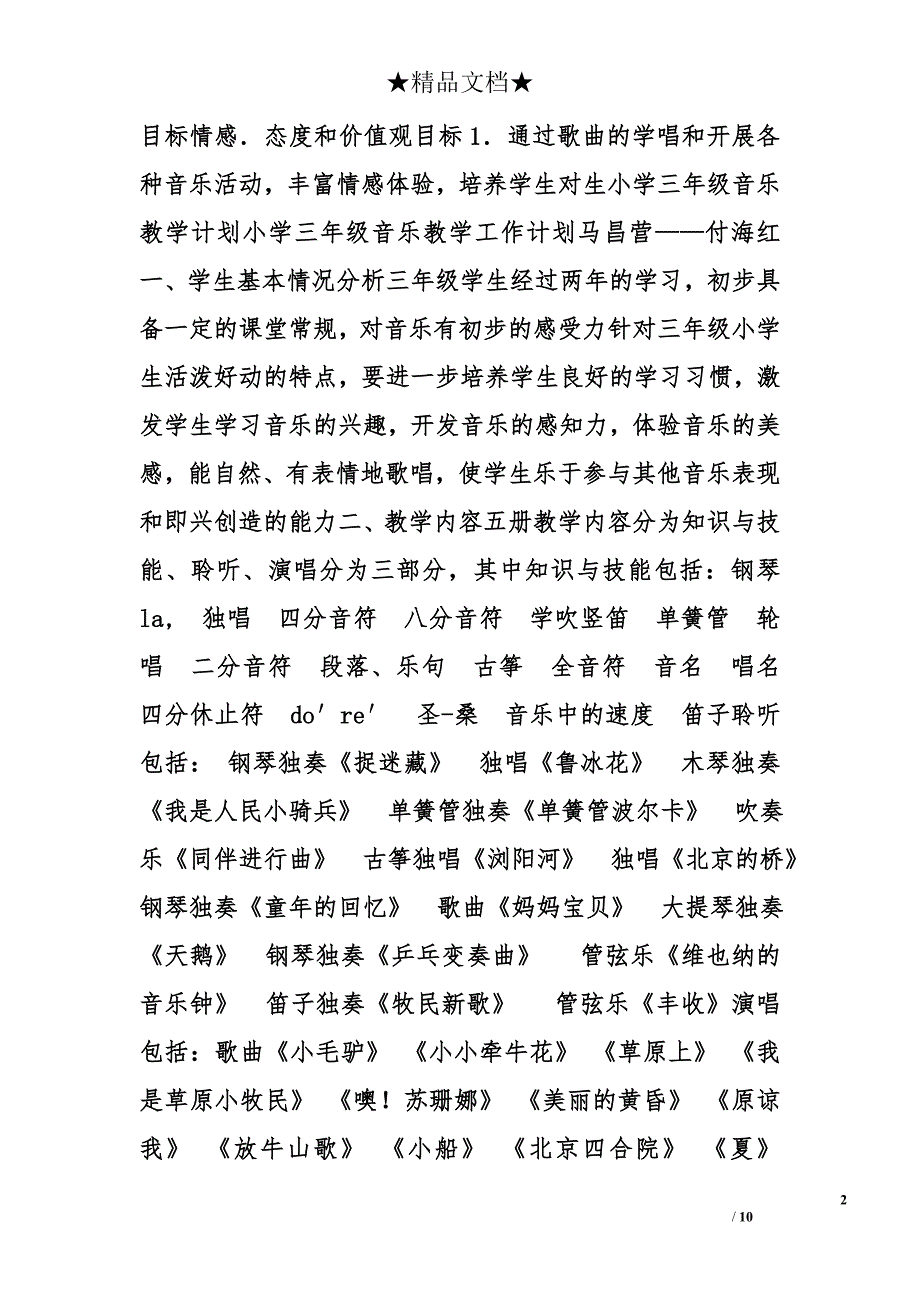 ★精品文档★
目标情感．态度和价值观目标1．通过歌曲的学唱和开展各
种音乐活动，丰富情感体验，培养学生对生小学三年级音乐
教学计划小学三年级音乐教学工作计划马昌营——付海红
一、学生基本情况分析三年级学生经过两年的学习，初步具
备一定的课堂常规，对音乐有初步的感受力针对三年级小学
生活泼好动的特点，要进一步培养学生良好的学习习惯，激
发学生学习音乐的兴趣，开发音乐的感知力，体验音乐的美
感，能自然、有表情地歌唱，使学生乐于参与其他音乐表现
和即兴创造的能力二、教学内容五册教学内容分为知识与技
能、聆听、演唱分为三部分，其中知识与技能包括：钢琴
la， 独唱 四分音符 八分音符 学吹竖笛 单簧管 轮
唱 二分音符 段落、乐句 古筝 全音符 音名 唱名
四分休止符 do′re′ 圣-桑 音乐中的速度 笛子聆听
包括： 钢琴独奏《捉迷藏》 独唱《鲁冰花》 木琴独奏
《我是人民小骑兵》 单簧管独奏《单簧管波尔卡》 吹奏
乐《同伴进行曲》 古筝独唱《浏阳河》 独唱《北京的桥》
钢琴独奏《童年的回忆》 歌曲《妈妈宝贝》 大提琴独奏
《天鹅》 钢琴独奏《乒乓变奏曲》 管弦乐《维也纳的
音乐钟》 笛子独奏《牧民新歌》 管弦乐《丰收》演唱
包括：歌曲《小毛驴》 《小小牵牛花》 《草原上》 《我
是草原小牧民》 《噢！苏珊娜》 《美丽的黄昏》 《原谅
我》 《放牛山歌》 《小船》 《北京四合院》 《夏》
2
/ 10